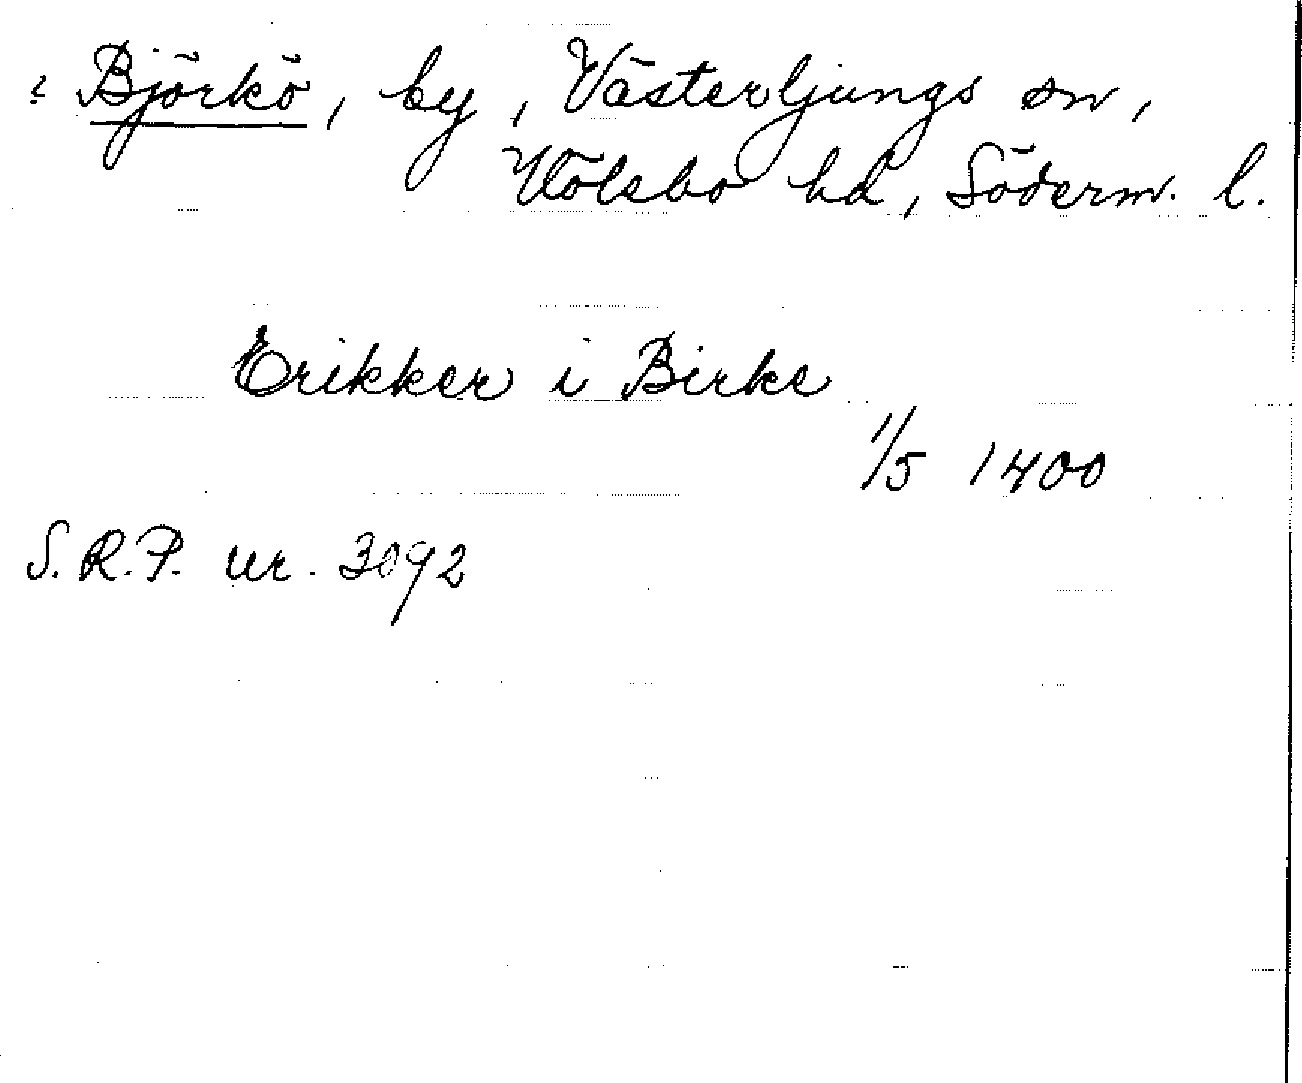 ? Björkö, by, Västerljungs sn,
Hölebo hd, Söderm. l.
Erikker i Birke
1/5 1400
S.R.P. nr. 3092